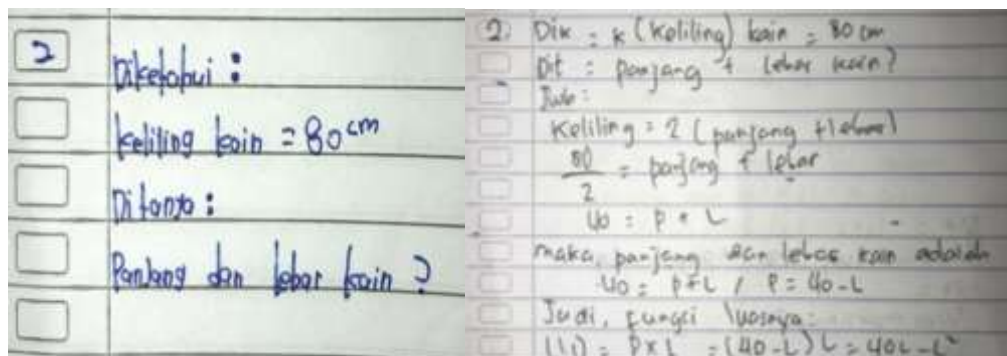 2
Diketahui :
keliling kain = 80 cm
Ditanya :
Panjang dan lebar kain ?
2. Dik = K (Keliling) kain = 80 cm
Dit : panjang + lebar kain?
Jwb :
Keliling = 2 (panjang + lebar)
80/2 = panjang + lebar
40 = P + L
maka, panjang dan lebar kain adalah
40 = P+L / P = 40-L
Jadi, fungsi luasnya:
L(L) = P x L = (40-L) L = 40L - L²